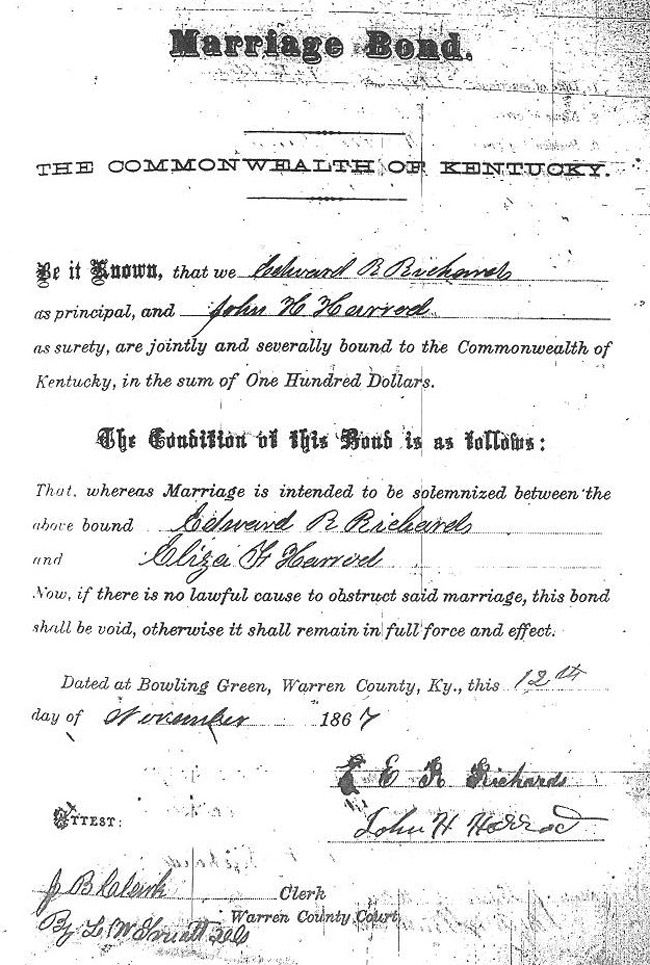 Marriage Bond.
THE COMMONWEALTH OF KENTUCKY.
Be it Known, that we Edward R Richards
as principal, and John H Harrod
as surety, are jointly and severally bound to the Commonwealth of
Kentucky, in the sum of One Hundred Dollars.
The Condition of this Bond is as follows:
That, whereas Marriage is intended to be solemnized between the
above bound Edward R Richards
and Eliza F Harrod
Now, if there is no lawful cause to obstruct said marriage, this bond
shall be void, otherwise it shall remain in full force and effect.
Dated at Bowling Green, Warren County, Ky., this 12th
day of November 1867
E R Richards
ATTEST:
John H Harrod
J B Clerk
Warren County Court
By